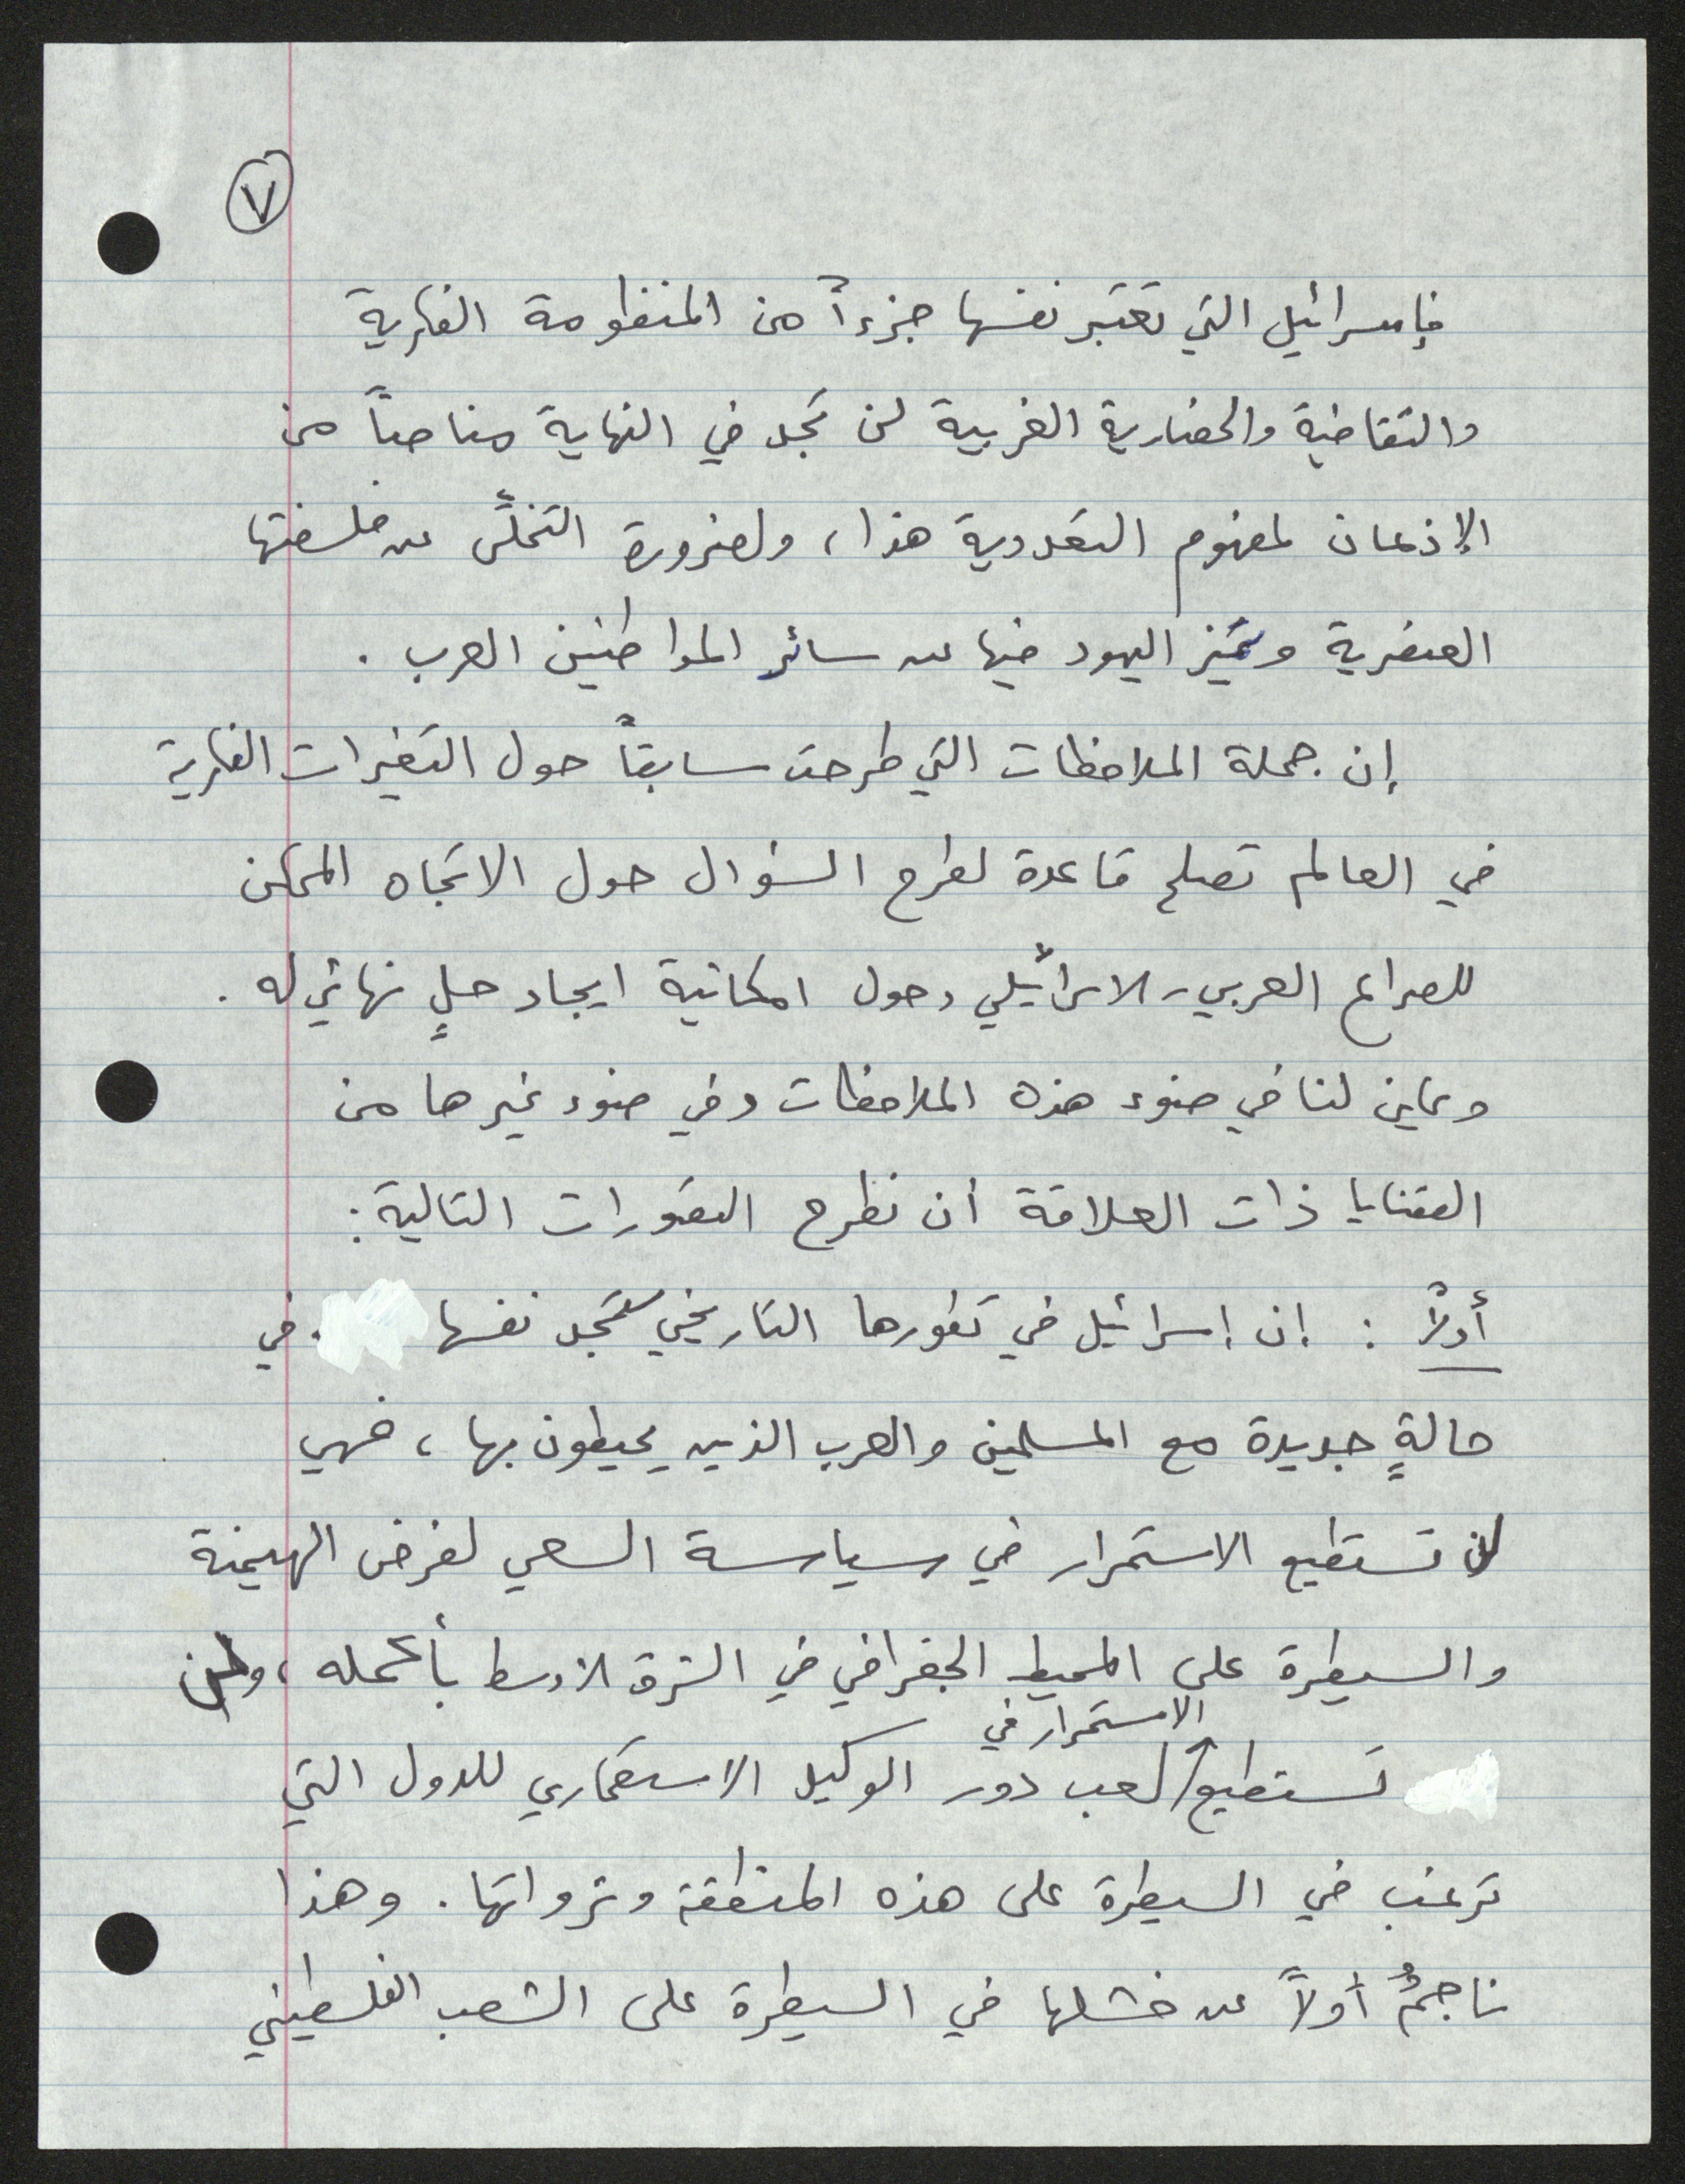 ٧
فإسرائيل التي تعتبر نفسها جزءاً من المنظومة الفكرية
والثقافية والحضارية الغربية لن تجد في النهاية مناصاً من
الإذعان لمفهوم التعددية هذا، ولضرورة التخلّي عن فلسفتها
العنصرية وتميّز اليهود فيها عن سائر المواطنين العرب.
إن جملة الملاحظات التي طرحت سابقاً حول التغيرات الفكرية
في العالم تصلح قاعدة لطرح السؤال حول الاتجاه الممكن
للصراع العربي-الاسرائيلي وحول امكانية ايجاد حلٍ نهائي له.
ويمكن لنا في ضوء هذه الملاحظات وفي ضوء غيرها من
القضايا ذات العلاقة أن نطرح التصورات التالية:
أولاً: إن إسرائيل في تطورها التاريخي ستجد نفسها في
حالةٍ جديدة مع المسلمين والعرب الذين يحيطون بها، فهي
لن تستطيع الاستمرار في سياسة السعي لفرض الهيمنة
والسيطرة على المحيط الجغرافي في الشرق الاوسط بأكمله، ولن
تستطيع الاستمرار في لعب دور الوكيل الاستعماري للدول التي
ترغب في السيطرة على هذه المنطقة وثرواتها. وهذا
ناجمٌ أولاً عن فشلها في السيطرة على الشعب الفلسطيني